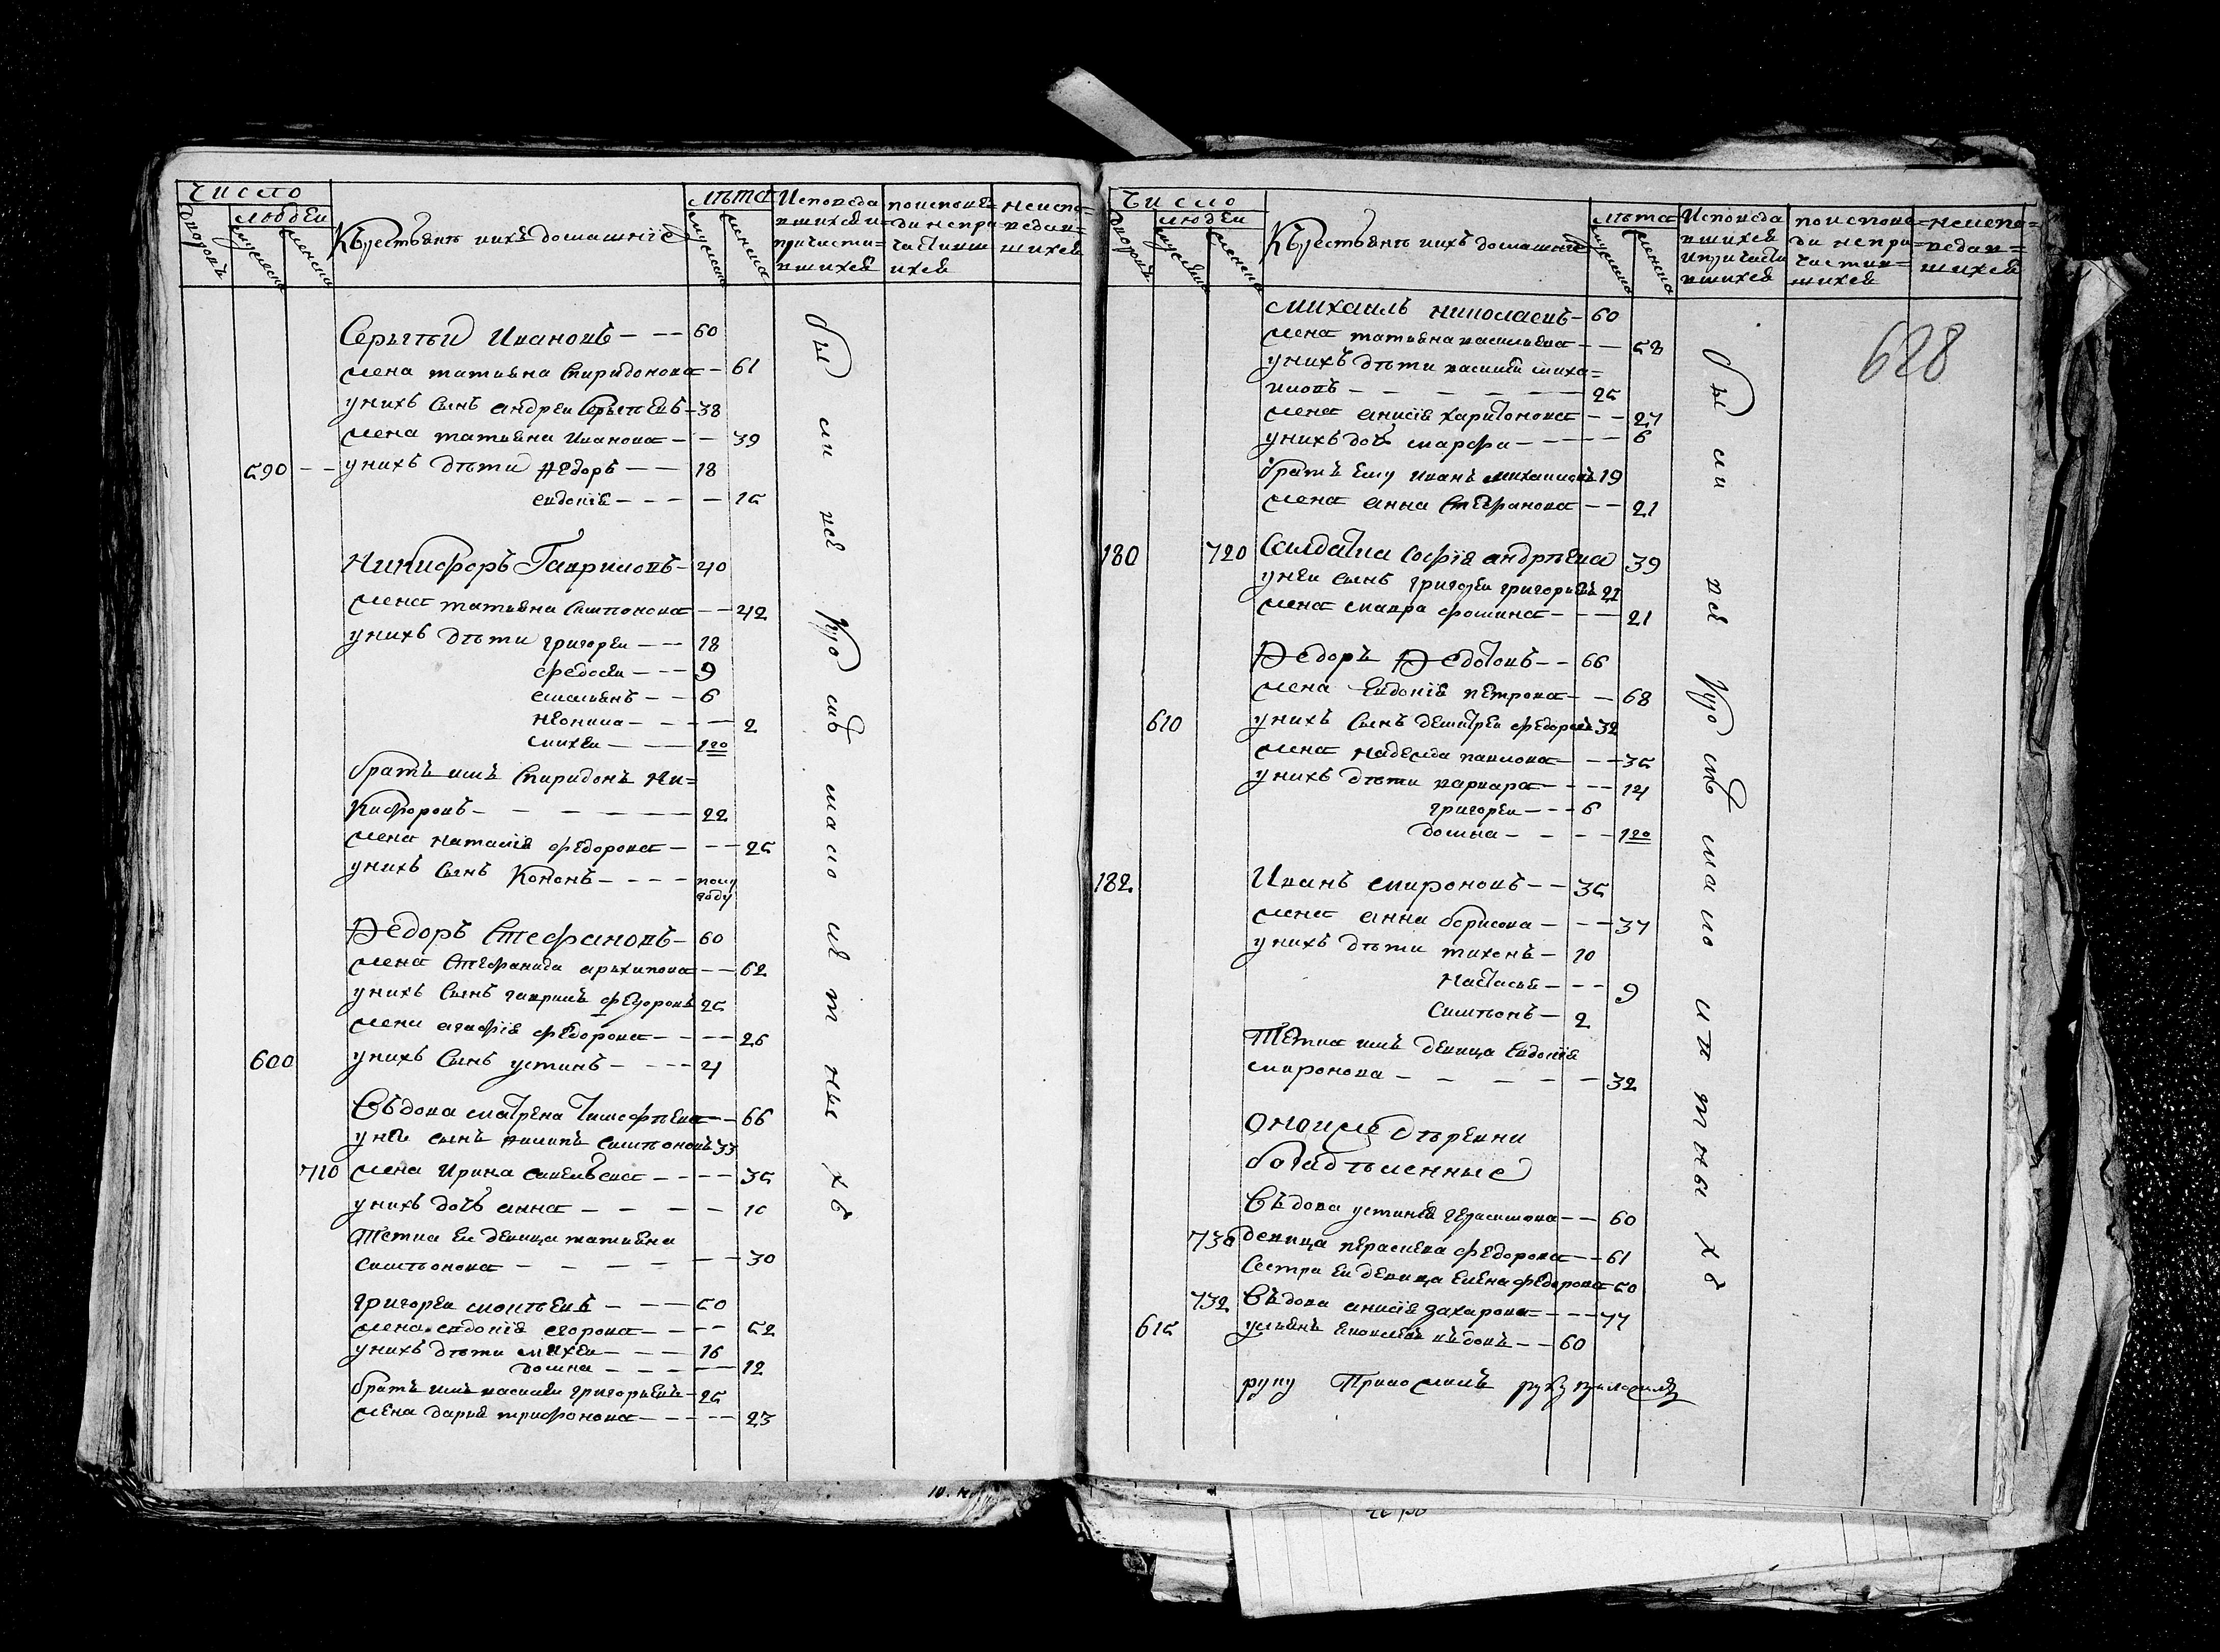 Число
людеи
дворовъ
мужеска
женска
Крестьянъ ихъ домашнїе
лѣта
мужеска
женска
Исповеда
вшихся и
причасти=
вшихся
по испове=
ди не при=
частивш
ихся
не испо=
ведав=
шихся
Сергѣи Ивановъ - - - 60
жена татияна Спиридонова - 61
у нихъ сынъ андреи Сергѣевъ - 38
жена татияна Иванова - - 39
590 - - у нихъ дѣти Ѳедоръ - - 18
евдокїя - - - - 15
Никифоръ Гавриловъ - 40
жена татияна Симионова - - 42
у нихъ дѣти григореи - - 18
федосеи - - - 9
емельянъ - - 6
неонила - - - - 2
михеи - - - 1го
братъ имъ Спиридонъ Ни=
кифоровъ - - - - - - 22
жена наталїя федорова - - - 25
у нихъ сынъ Кононъ - - - - полу
году
Ѳедоръ Стефановъ - 60
жена Стефанида архипова - - 62
у нихъ сынъ гаврила федоровъ 25
жена агафїя федорова - - - - 26
600 у нихъ сынъ устинъ - - - - 4
Въдова матрена Тимофѣева - - 66
у неи сынъ филипъ симионовъ 33
710 жена Ирина савельева - - - - 35
у нихъ дочь анна - - - - 10
Тетка еи девица татияна
симионова - - - - - - 30
григореи моисѣевъ - - - - 50
жена евдокїя егорова - - - - 52
у нихъ дѣти михеи - - - - 16
домна - - - - - 12
братъ имъ василеи григорьевъ - 25
жена дария трифонова - - - - 23
бы ли всѣ

Число
людеи
дворовъ
мужеска
женска
Крестьянъ ихъ домашнїе
лѣта
мужеска
женска
Исповеда
вшихся
и причасти
вшихся
по испове=
ди не при=
частив=
шихся
не испо=
ведав=
шихся
628
Михаилъ николаевъ - 60
жена татияна васильева - - 58
у нихъ дѣти василеи миха=
иловъ - - - - - - 25
жена анисїя харитонова - - 27
у нихъ дочь марфа - - - - - 6
братъ ему иванъ михаиловъ 19
жена анна Стефанова - - 21
180 720 Салдатка софїя андрѣева 39
у неи сынъ григореи григорьевъ 22
жена мавра фомина - - - 21
Ѳедоръ Ѳедотовъ - - 66
жена Евдокїя петрова - - 68
610 у нихъ сынъ деметреи федоровъ 32
жена надежда павлова - - - 35
у нихъ дѣти варвара - - - - 14
григореи - - - 6
домна - - - - 1го
182 Иванъ мироновъ - - 35
жена анна борисова - - - 37
у нихъ дѣти тихонъ - 10
настасья - - - 9
Симионъ - 2
Тетка имъ девица Евдокїя
миронова - - - - - 32
оноиже дѣревни
богадѣленные
Въдова устинья герасимова - - 60
730 девица парасковья федорова - - 61
Сестра еи девица Елена федорова 50
732 Въдова анисїя захарова - - - 77
615 ульянъ яковлевъ въдовъ - - 60
бы ли всѣ
руку Приложилъ руку приложилъ